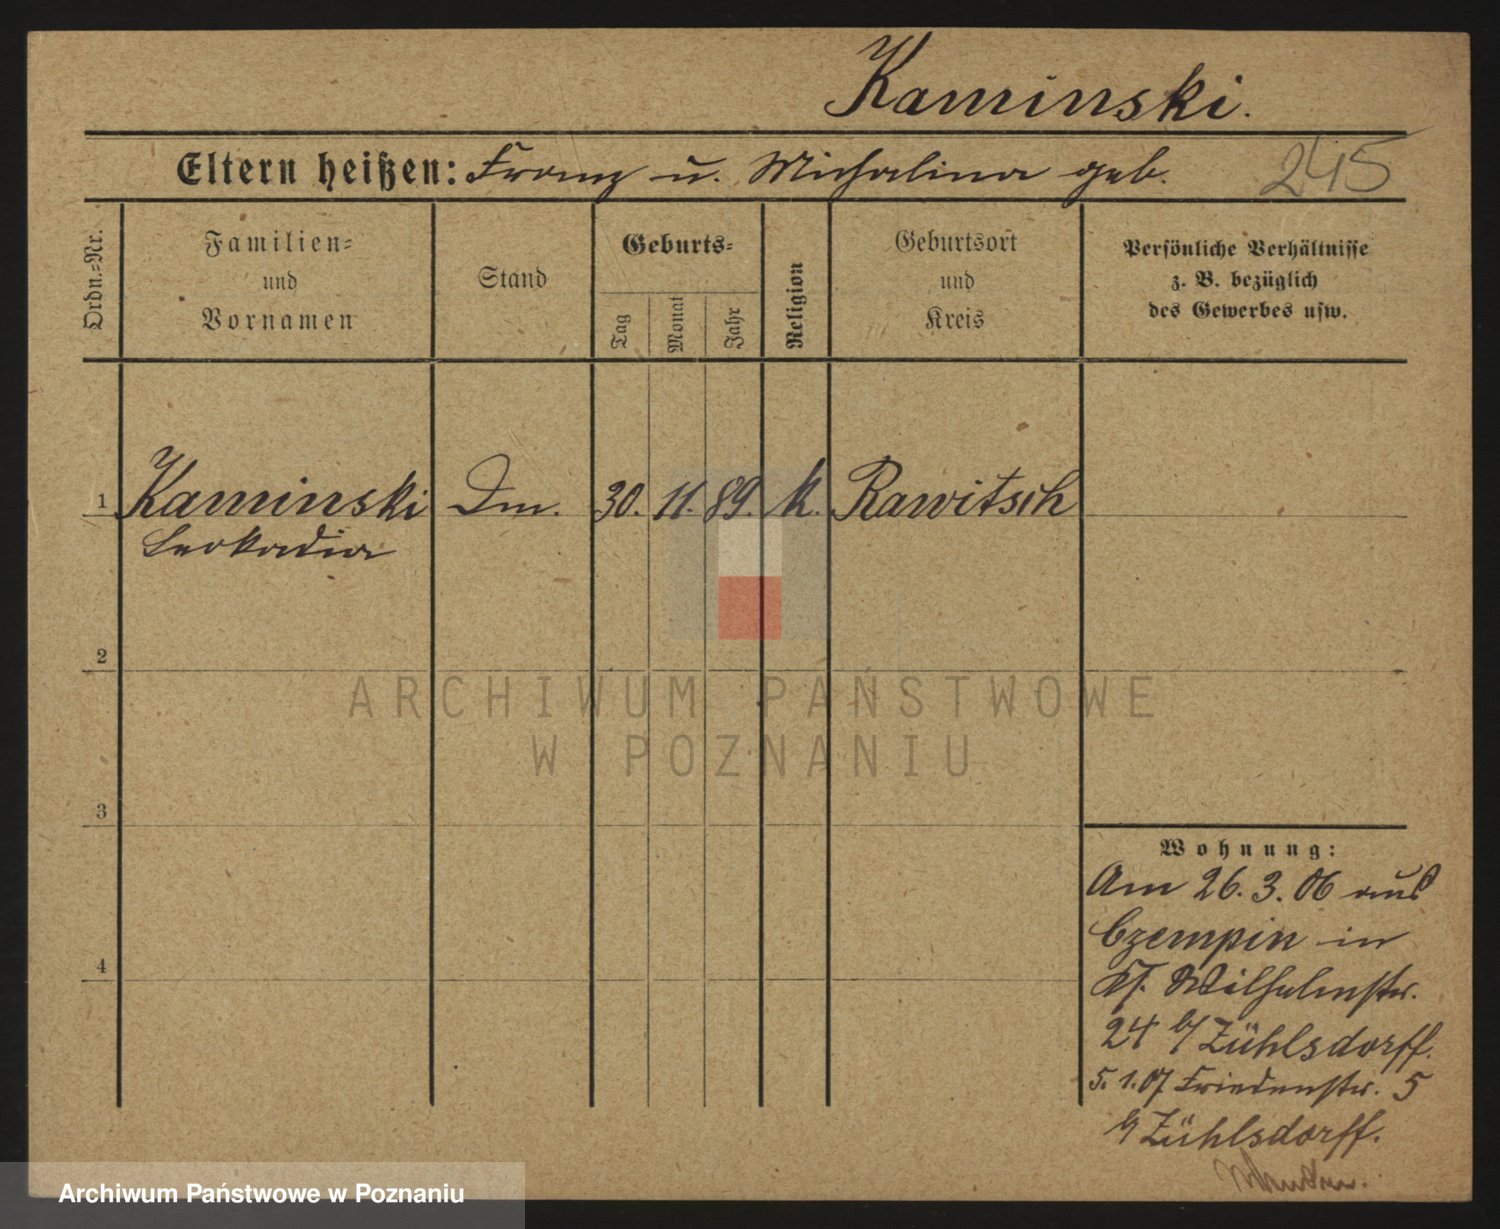 Kaminski.
Eltern heißen: Franz u. Michalina geb. 245
Ordn.-Nr.
Familien-
und
Vornamen
Stand
Geburts-
Tag
Monat
Jahr
Religion
Geburtsort
und
Kreis
Persönliche Verhältnisse
z. B. bezüglich
des Gewerbes usw.
1 Kaminski Dm. 30. 11. 89. k. Rawitsch
Leokadia
2
ARCHIWUM PAŃSTWOWE
W POZNANIU
3
Wohnung:
Am 26.3.06 aus
Czempin in
4
Wilhelmstr.
24 b/ Zühlsdorff.
5.1.07 Friedenstr. 5
b/ Zühlsdorff.
Archiwum Państwowe w Poznaniu